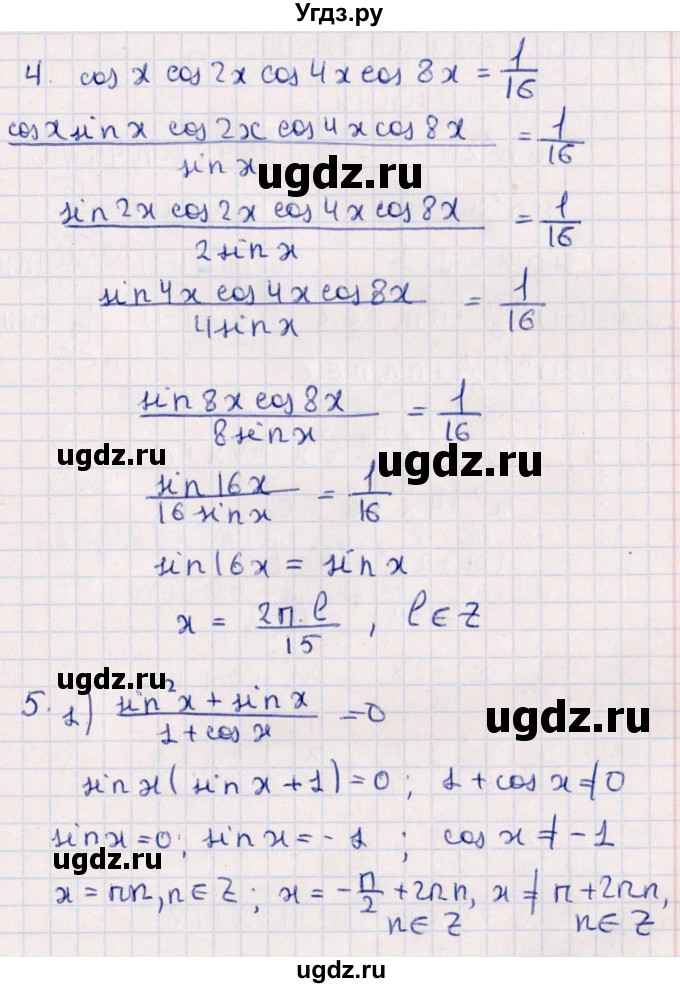 Угдз.ру
4. cos x cos 2x cos 4x cos 8x = 1/16
cos x sin x cos 2x cos 4x cos 8x / sin x = 1/16
ugdz.ru
sin 2x cos 2x cos 4x cos 8x / 2 sin x = 1/16
sin 4x cos 4x cos 8x / 4 sin x = 1/16
sin 8x cos 8x / 8 sin x = 1/16
ugdz.ru
ugdz.ru
sin 16x / 16 sin x = 1/16
sin 16x = sin x
x = 2π·l / 15, l ∈ Z
ugdz.ru
5. 1) sin²x + sin x / 1 + cos x = 0
ugdz.ru
sin x (sin x + 1) = 0; 1 + cos x ≠ 0
sin x = 0; sin x = -1; cos x ≠ -1
ugdz.ru
x = πn, n ∈ Z; x = -π/2 + 2πn, x ≠ π + 2πn,
n ∈ Z n ∈ Z
ugdz.ru